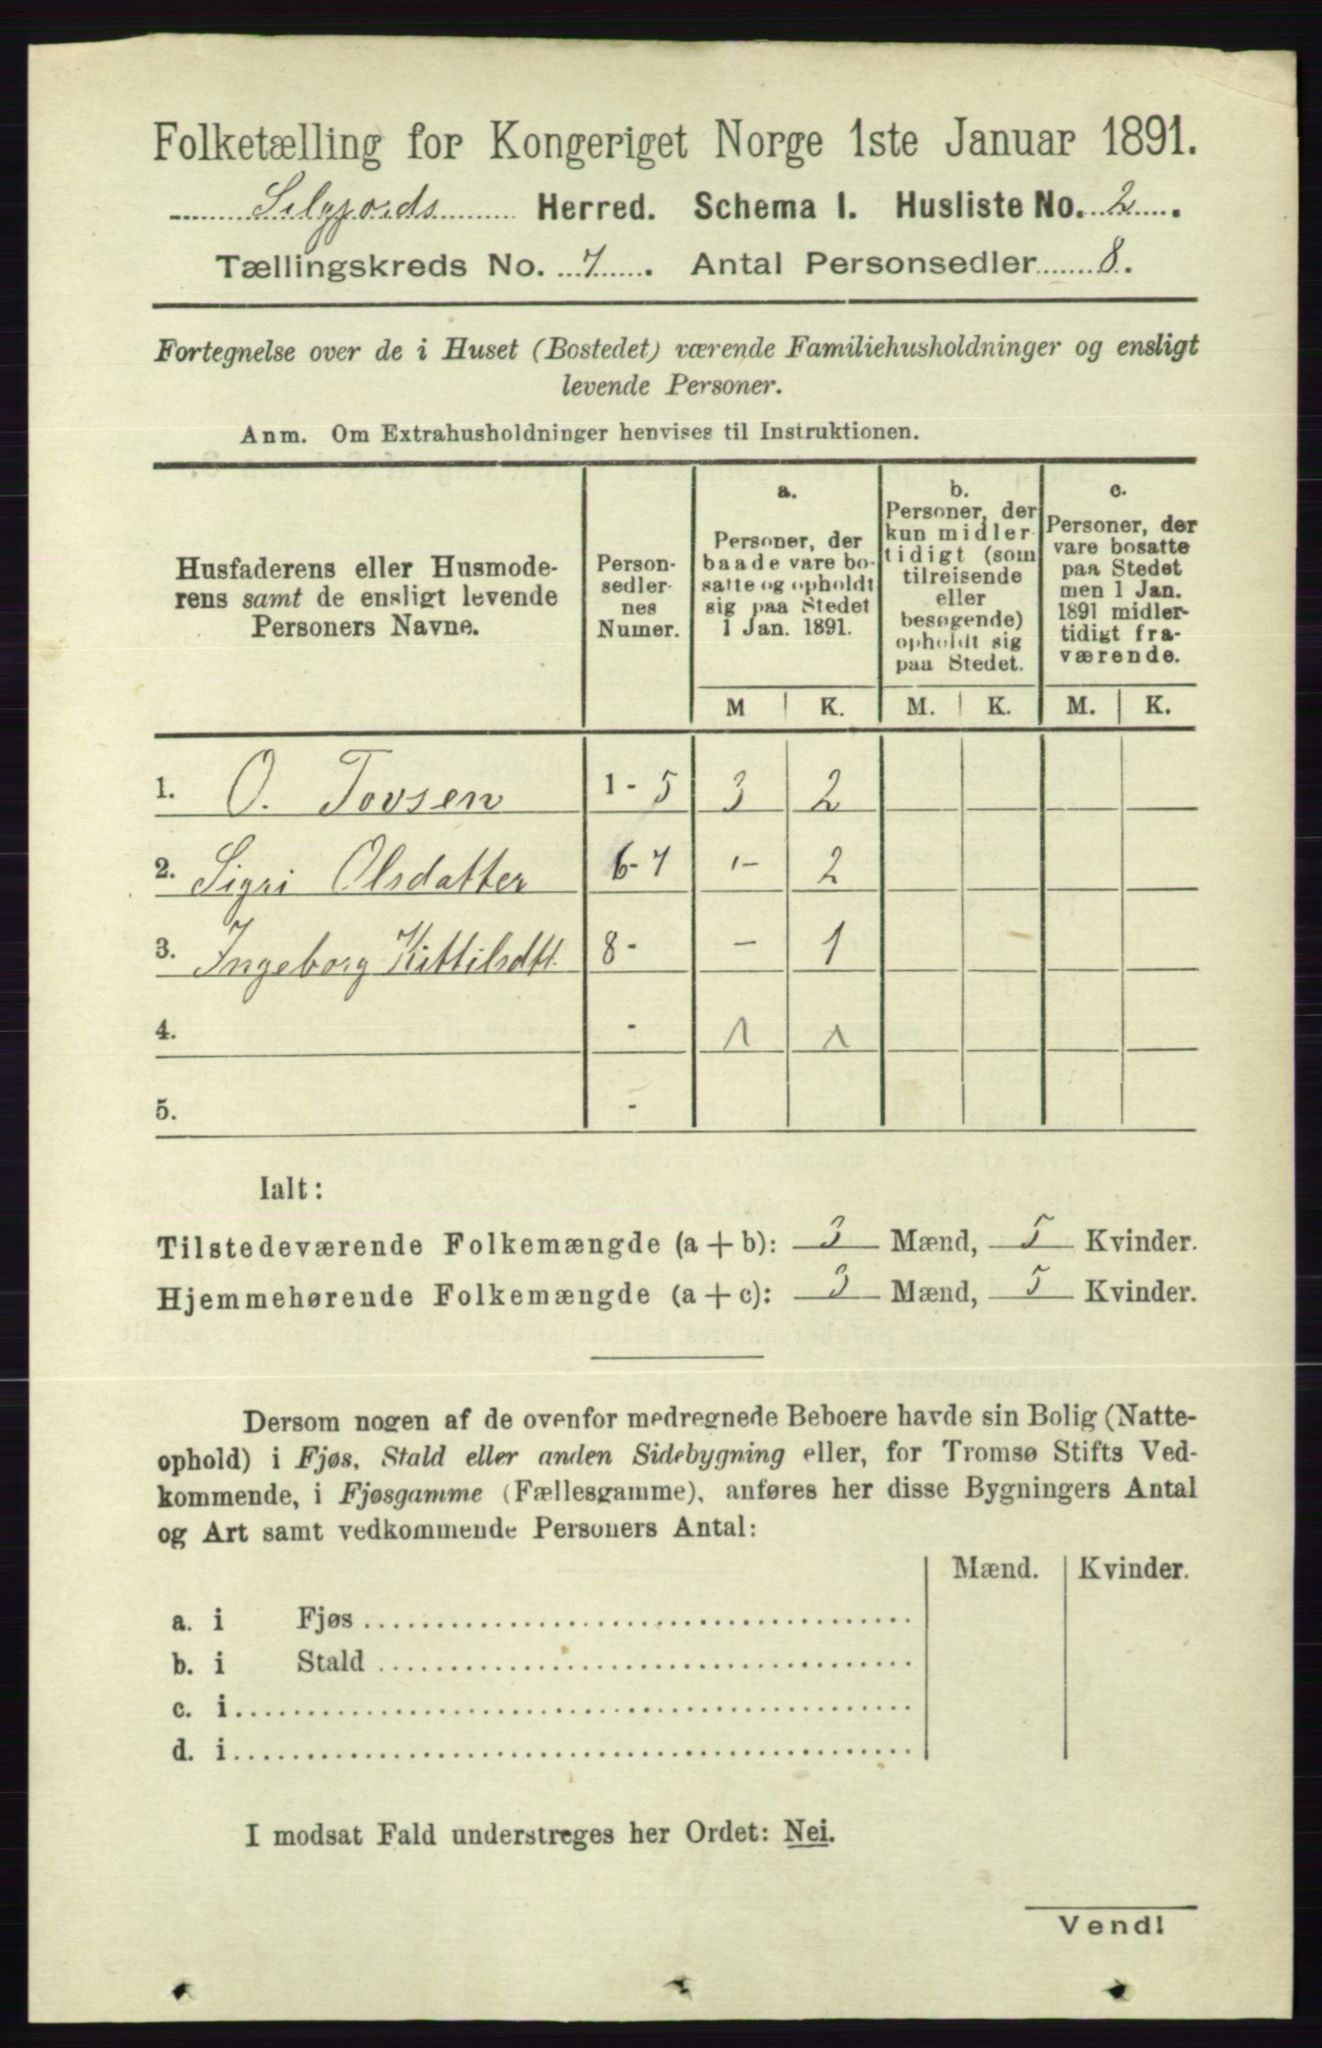 Folketælling for Kongeriget Norge 1ste Januar 1891.
Silgjords Herred. Schema I. Husliste No. 2.
Tællingskreds No. 7. Antal Personsedler 8.
Fortegnelse over de i Huset (Bostedet) værende Familiehusholdninger og ensligt
levende Personer.
Anm. Om Extrahusholdninger henvises til Instruktionen.
Husfaderens eller Husmode-
rens samt de ensligt levende
Personers Navne.
Person-
sedler-
nes
Numer.
a.
Personer, der
baade vare bo-
satte og opholdt
sig paa Stedet
1 Jan. 1891.
b.
Personer, der
kun midler-
tidigt (som
tilreisende
eller
besøgende)
opholdt sig
paa Stedet.
c.
Personer, der
vare bosatte
paa Stedet
men 1 Jan.
1891 midler-
tidigt fra-
værende.
M K. M. K. M. K.
1. O. Tovsen 1-5 3 2
2. Sigri Olsdatter 6-7 - 2
3. Ingeborg Kittilsdtt. 8- - 1
4. - 1 1
5. -
Ialt:
Tilstedeværende Folkemængde (a+b): 3 Mænd, 5 Kvinder.
Hjemmehørende Folkemængde (a+c): 3 Mænd, 5 Kvinder.
Dersom nogen af de ovenfor medregnede Beboere havde sin Bolig (Natte-
ophold) i Fjøs, Stald eller anden Sidebygning eller, for Tromsø Stifts Ved-
kommende, i Fjøsgamme (Fællesgamme), anføres her disse Bygningers Antal
og Art samt vedkommende Personers Antal:
Mænd. Kvinder.
a. i Fjøs
b. i Stald
c. i
d. i
I modsat Fald understreges her Ordet: Nei.
Vend!